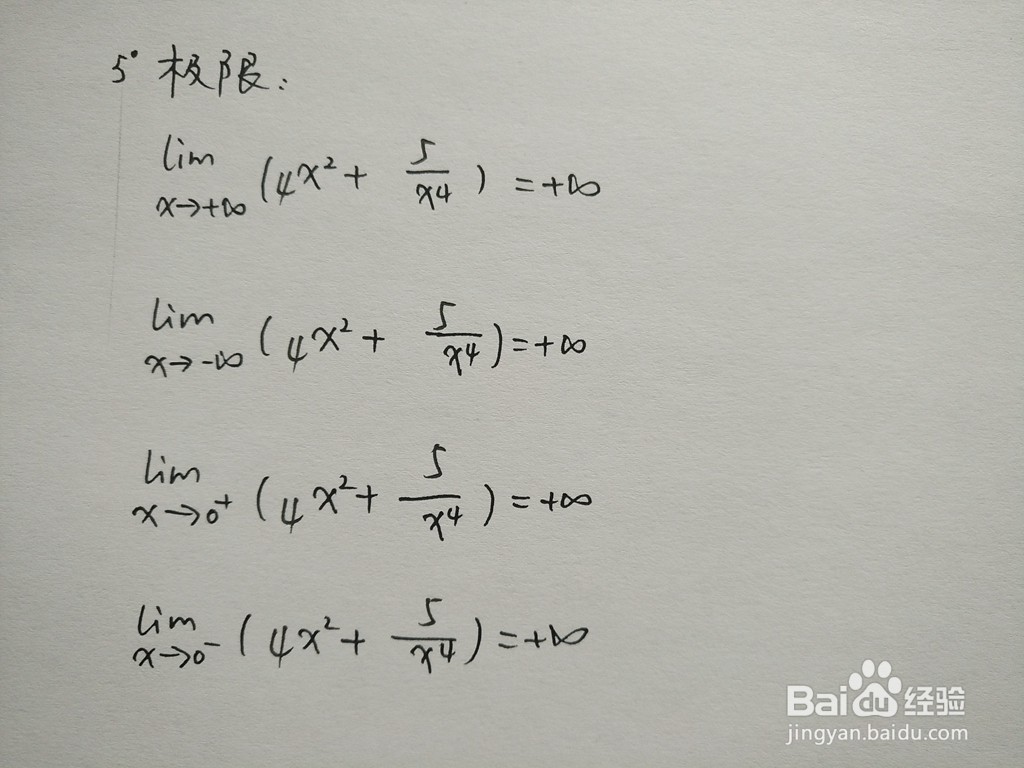 5° 极限:
lim x→+∞ (4x² + 5/x⁴) = +∞
lim x→-∞ (4x² + 5/x⁴) = +∞
lim x→0⁺ (4x² + 5/x⁴) = +∞
lim x→0⁻ (4x² + 5/x⁴) = +∞
Bai du 经验
jingyan.baidu.com